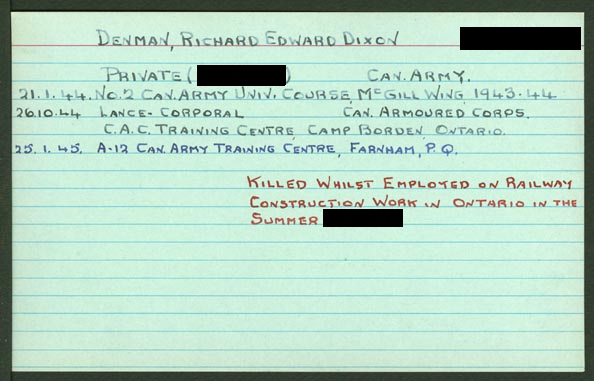 DENMAN, RICHARD EDWARD DIXON
PRIVATE ( ) CAN. ARMY.
21.1.44. NO.2 CAN. ARMY UNIV. COURSE, MCGILL WING, 1943-44
26.10.44 LANCE-CORPORAL CAN. ARMOURED CORPS.
C.A.C. TRAINING CENTRE, CAMP BORDEN, ONTARIO.
25.1.45. A-12 CAN. ARMY TRAINING CENTRE, FARNHAM, P.Q.
KILLED WHILST EMPLOYED ON RAILWAY
CONSTRUCTION WORK IN ONTARIO IN THE
SUMMER